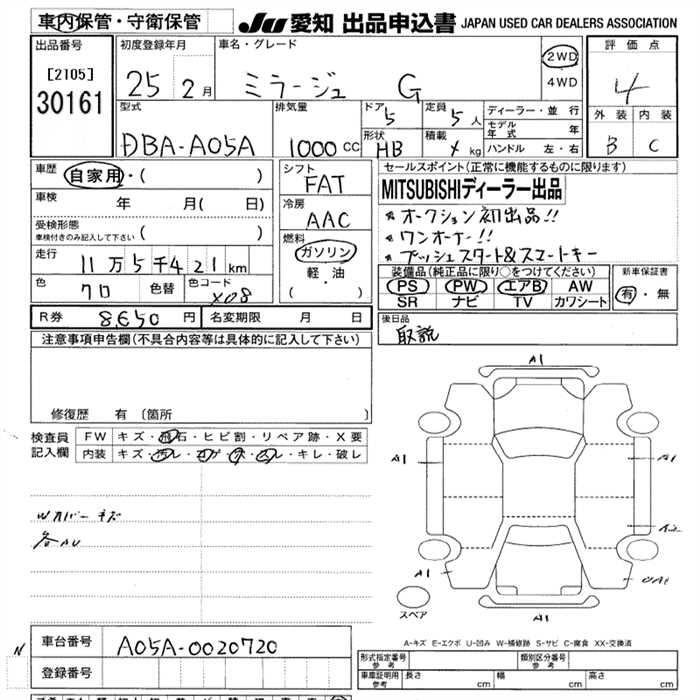 車内保管・守衛保管 JU 愛知 出品申込書 JAPAN USED CAR DEALERS ASSOCIATION
出品番号 初度登録年月 車名・グレード 評価点
[2105] 25 2月 ミラージュ G 2WD 4
30161 4WD 外装 内装
型式 排気量 ドア 5 定員 5人 ディーラー・並行 B C
DBA-A05A 1000 CC 形状 HB 積載 kg モデル年式 年
ハンドル 左・右
車歴 自家用・( ) シフト FAT セールスポイント(正常に機能するものに限ります)
車検 年 月( 日) 冷房 AAC MITSUBISHIディーラー出品
受検形態 ( ) オークション初出品!!
車検付きのみ記入して下さい 燃料 ワンオーナー!!
走行 11万5千421km ガソリン プッシュスタート&スマートキー
色 クロ 色替 色コード X08 軽・油 装備品(純正品に限り○をつけてください) 新車保証書
( ・ ) PS PW エアB AW 有・無
SR ナビ TV カワシート
R券 8,650円 名変期限 月 日 後日品
取説
注意事項申告欄(不具合内容等は具体的に記入して下さい)
修復歴 有〔箇所 〕
検査員 FW キズ・飛石・ヒビ割・リペア跡・X要
記入欄 内装 キズ・汚レ・コゲ・穴・スレ・キレ・破レ
Wカバーキズ
各AU
A1
A1 A1
A1
A1
スペア
A-キズ E-エクボ U-凹み W-補修跡 S-サビ C-腐食 XX-交換済
N 車台番号 A05A-0020720
登録番号
形式指定番号 参考 類別区分番号 参考
車庫証明用 参考 長さ cm 幅 cm 高さ cm